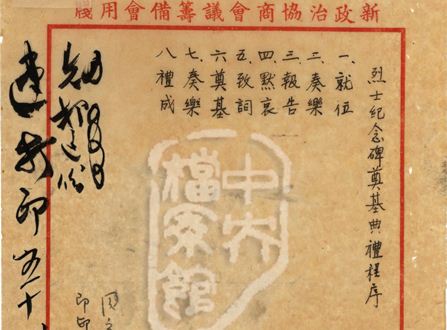 新政治協商會議籌備會用箋
烈士紀念碑奠基典禮程序
一、就位
二、奏樂
三、報告
四、默哀
五、致詞
六、奠基
七、奏樂
八禮成
印五十
中央
檔案館